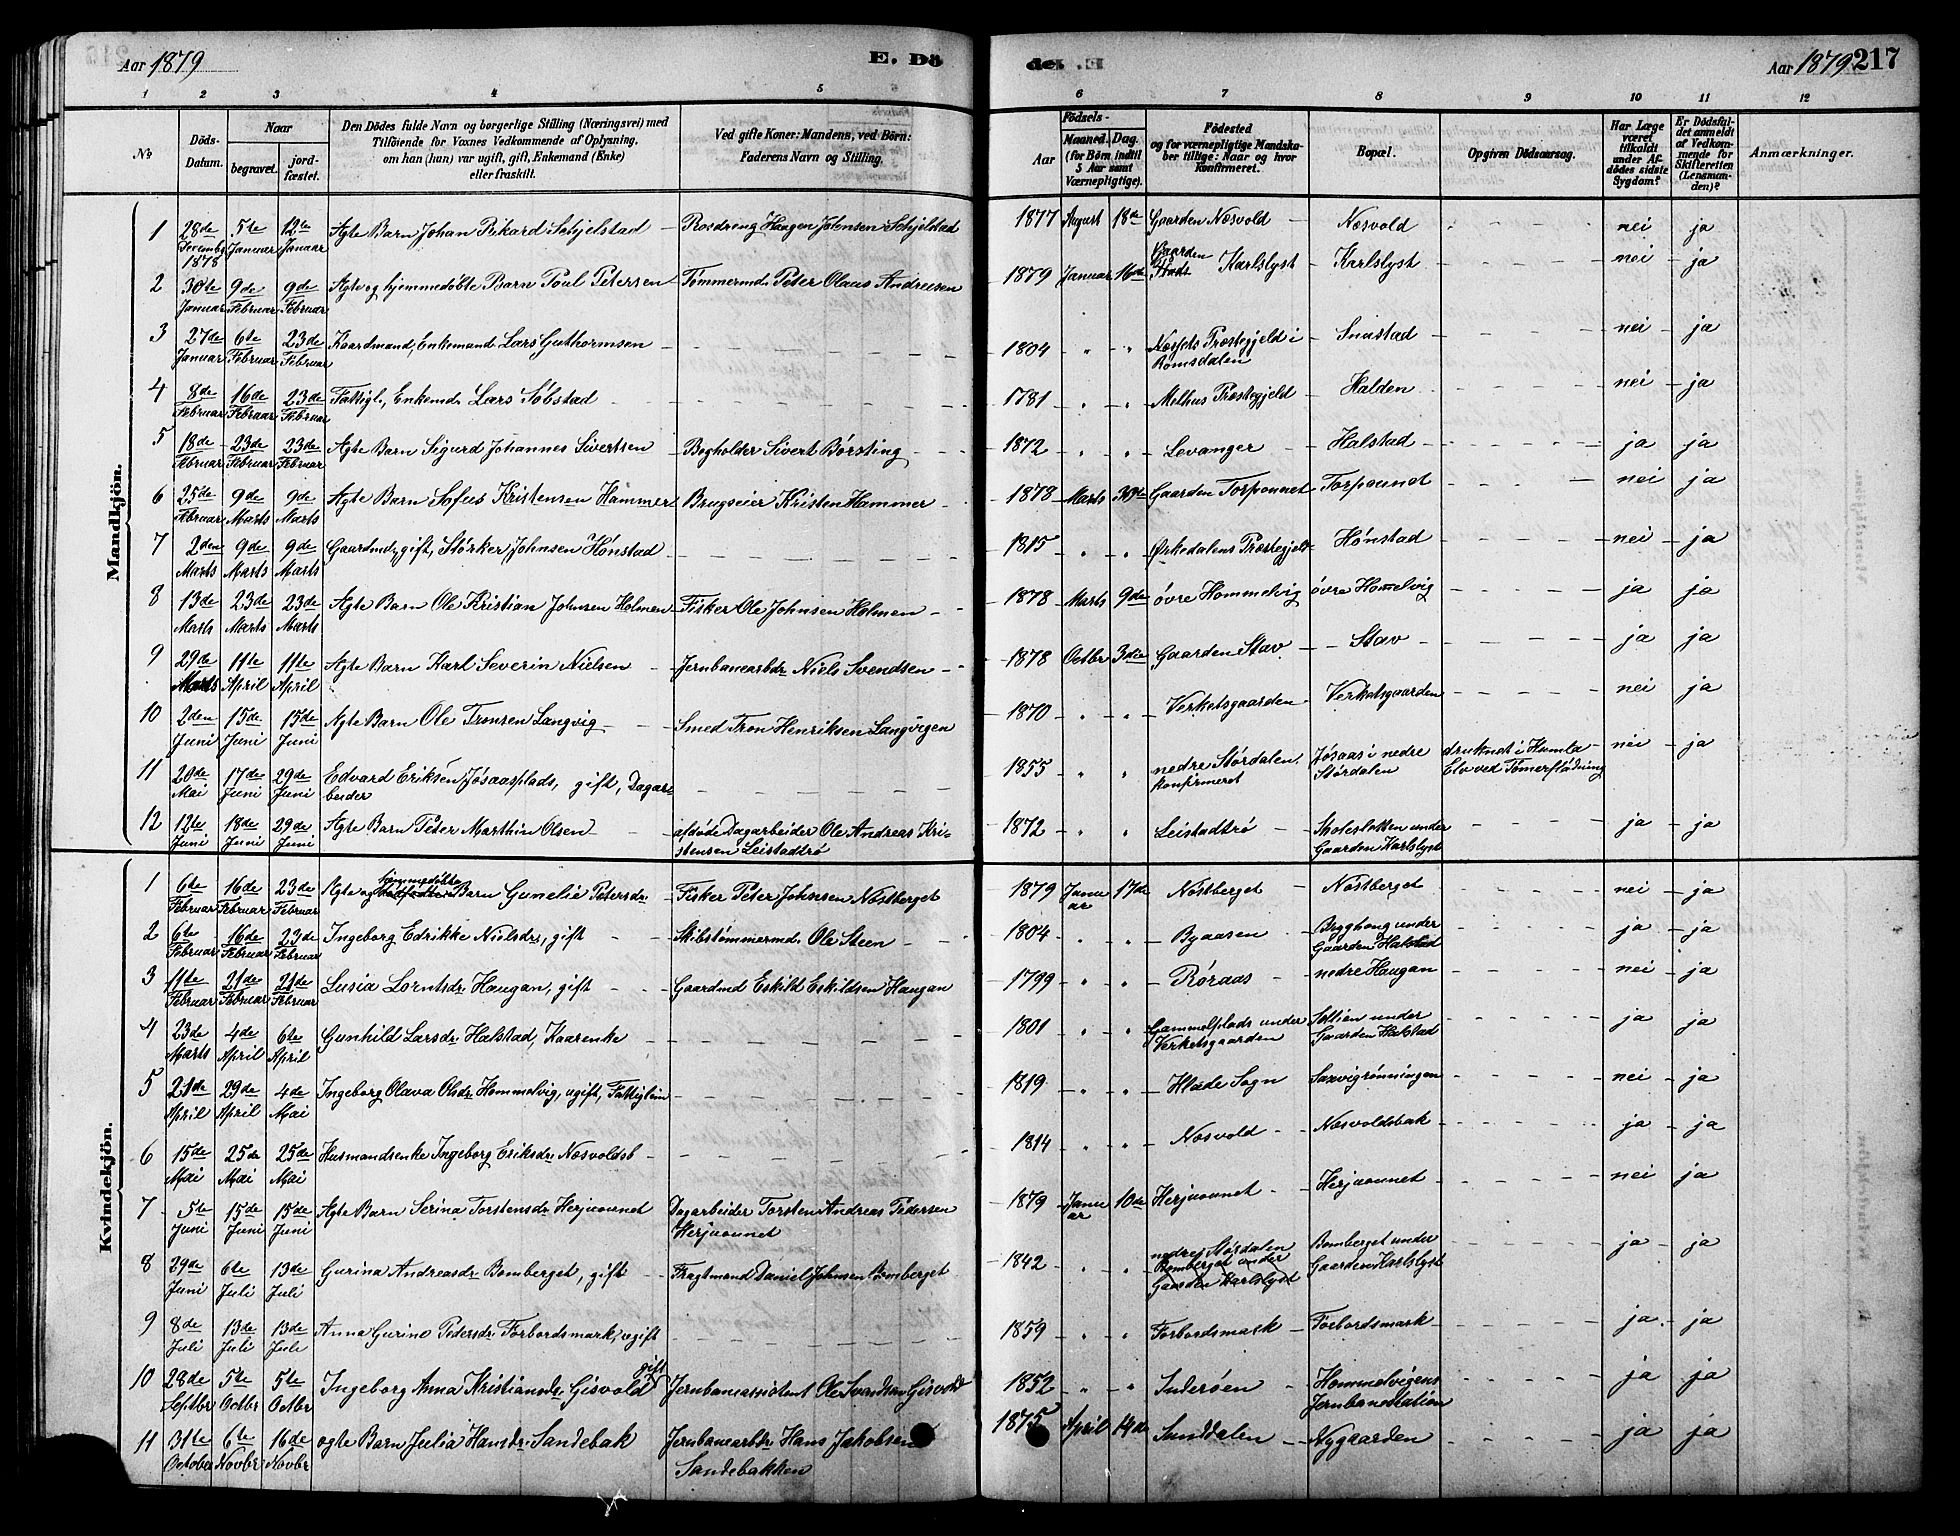 Aar 1879
E. Dö
de. E.
Aar 1879
217
1 2 3 4 5 6 7 8 9 10 11 12
No
Döds-Datum.
Naar
begravet.
jord-fæstet.
Den Dödes fulde Navn og borgerlige Stilling (Næringsvei) med
Tilföiende for Voxnes Vedkommende af Oplysning,
om han (hun) var ugift, gift, Enkemand (Enke)
eller fraskilt.
Ved gifte Koner: Mandens, ved Börn:
Faderens Navn og Stilling.
Födsels-
Aar
Maaned. Dag.
(for Börn indtil
5 Aar samt
Værnepligtige).
Födested
og for værnepligtige Mandska-
ber tillige: Naar og hvor
konfirmeret.
Bopæl.
Opgiven Dödsaarsag.
Har Læge
været
tilkaldt
under Af-
dödes sidste
Sygdom?
Er Dödsfal-
det anmeldt
af Vedkom-
mende for
Skifteretten
(Lensman-
den)?
Anmærkninger.
Mandkjön.
1 28de Decembr 1878 5te Januar 12te Januar Ægte Barn Johan Rikard Schjelstad Haagen Johnsen Schjelstad 1877 August 18de Gaarden Næsvold Næsvold nei ja
2 30te Januar 9de Februar 9de Februar Ægte og hjemmedøbte Barn Poul Petersen Tømmermd. Peter Olaus Andresen 1879 Januar 16de Gaarden Karlslyst Karlslyst nei ja
3 27de Januar 6te Februar 23de Februar Kaardmand, Enkemand Lars Guthormsen 1804 Præstegjeld i Romsdalen nei ja
4 8de Februar 16de Februar 23de Februar Fattigl., Enkemd. Lars Søbstad 1781 Melhus Præstegjeld Halden nei ja
5 18de Februar 23de Februar 23de Februar Ægte Barn Sigurd Johannes Sivertsen Bogholder Sivert Børsting 1872 Levanger Halstad ja ja
6 25de Februar 9de Marts 9de Marts Ægte Barn Sofus Kristensen Hammer Brugseier Kristen Hammer 1878 Marts Gaarden Torpounet Torpounet nei ja
7 2den Marts 9de Marts 9de Marts Gaardmd., gift, Størker Johnsen Hønstad 1815 Ørkedalens Præstegjeld Hønstad nei ja
8 13de Marts 23de Marts 23de Marts Ægte Barn Ole Kristian Johnsen Holmen Fisker Ole Johnsen Holmen 1878 Marts 9de øvre Hommelvig øvre Homelvig ja ja
9 29de Marts 11te April 11te April Ægte Barn Karl Severin Nielsen Jernbanearbdr. Niels Svendsen 1878 Octbr 3die Gaarden Stav Stav ja ja
10 2den Juni 15de Juni 15de Juni Ægte Barn Ole Tronsen Langvig Smed Tron Henriksen Langvigen 1870 Verketsgaarden Verketsgaarden nei ja
11 20de Mai 17de Juni 29de Juni Edvard Eriksen Jøsaasplads, gift, Dagar-
beider 1855 nedre Størdalen, konfirmeret Jøsaas i nedre Størdalen druknet i Humla Elv ved Tømerflødning nei ja
12 12te Juni 18de Juni 29de Juni Ægte Barn Peter Marthin Olsen afdøde Dagarbeider Ole Andreas Kri-
stensen Leistadtrø 1872 Leistadtrø under Gaarden Karlslyst ja ja
Kvindekjön.
1 6te Februar 16de Februar 23de Februar Ægte og hjemmedøbte Barn Gunelie Petersdr. Fisker Peter Johnsen Næstberget 1879 Januar 17de Næstberget Næstberget nei ja
2 6te Februar 16de Februar 23de Februar Ingeborg Edrikke Nielsdr., gift Skibstømmermd. Ole Steen 1804 Byaasen under Gaarden Halstad ja ja
3 11te Februar 21de Februar 21de Februar Susia Lorntsdr. Haugan, gift Gaardmd Eskild Eskildsen Haugan 1799 Røraas nedre Haugan nei ja
4 23de Marts 4de April 6te April Gunhild Larsdr. Halstad, Kaarenke 1801 Gammelplads under Verketsgaarden under Gaarden Halstad ja ja
5 21de April 29de April 4de Mai Ingeborg Olava Olsdr. Hommelvig, ugift, Fattiglem 1819 Hlade Sogn Saxvigrønningen nei ja
6 15de Mai 25de Mai 25de Mai Husmandsenke Ingeborg Eriksdr. Næsvoldsb 1814 Næsvold Næsvoldsbak ja ja
7 5te Juni 15de Juni 15de Juni Ægte Barn Serina Torstensdr. Herjuounet Dagarbeider Torsten Andreas Pedersen
Herjuounet 1879 Januar 10de Herjuounet Herjuounet nei ja
8 29de Juni 6te Juli 13de Juli Gurina Andreasdr. Bomberget, gift Fragtmand Daniel Johnsen Bomberget 1842 nedre Størdalen Bomberget under Gaarden Karlslyst Bomberget under Gaarden Karlslyst ja ja
9 8de Juli 13de Juli 13de Juli Anna Gurine Pedersdr. Forbordsmark, ugift 1859 Forbordsmark Forbordsmark ja ja
10 28de Septbr 5te Octbr 5te Octbr Ingeborg Anna Kristiansdr. Gisvold gift Jernbaneassistent Ole Svendsen Gisvold 1852 Inderøen Hommelvigens Jernbanestation ja ja
11 31te October 6te Novbr 16de Novbr ægte Barn Julia Hansdr. Sandebak Jernbanearbdr. Hans Jakobsen
Sandebakken 1875 April 14de Sunddalen Nygaarden ja ja